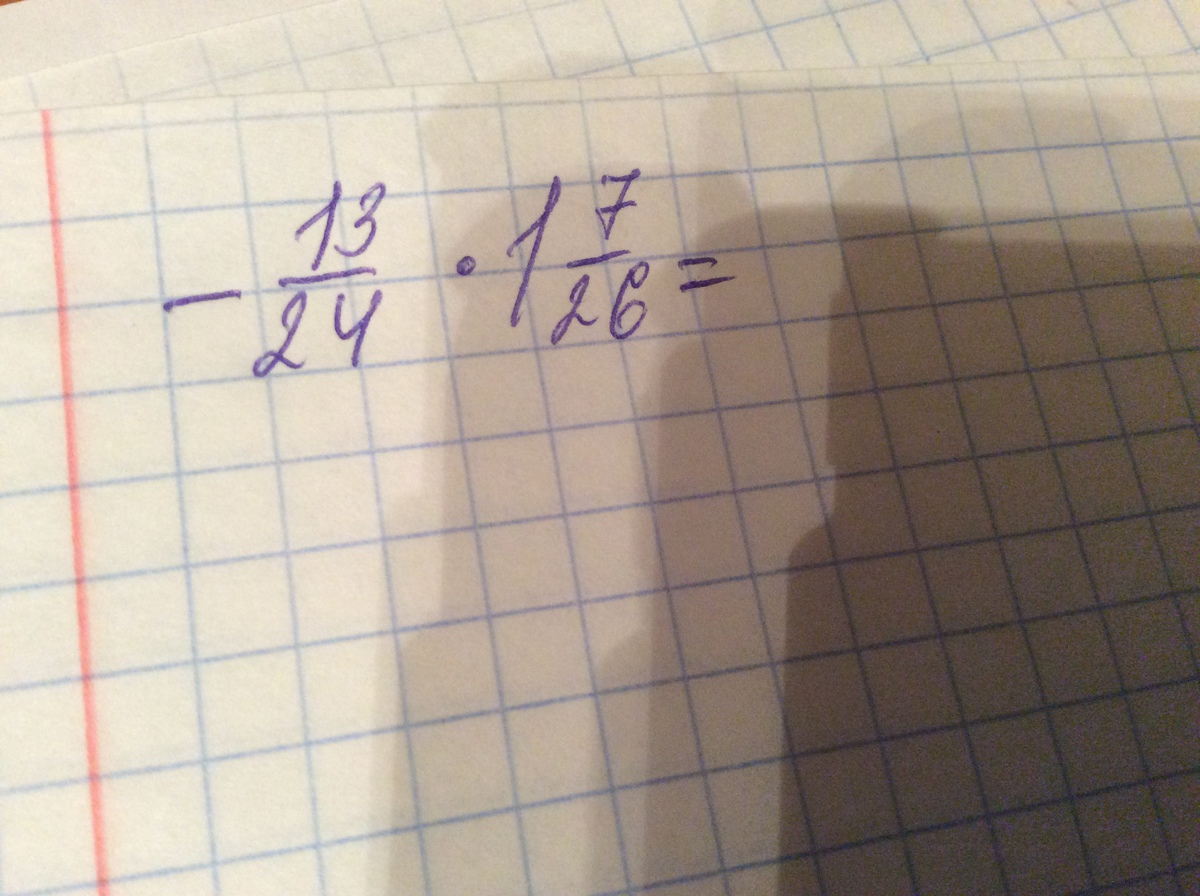 - 13/24 · 1 7/26 =